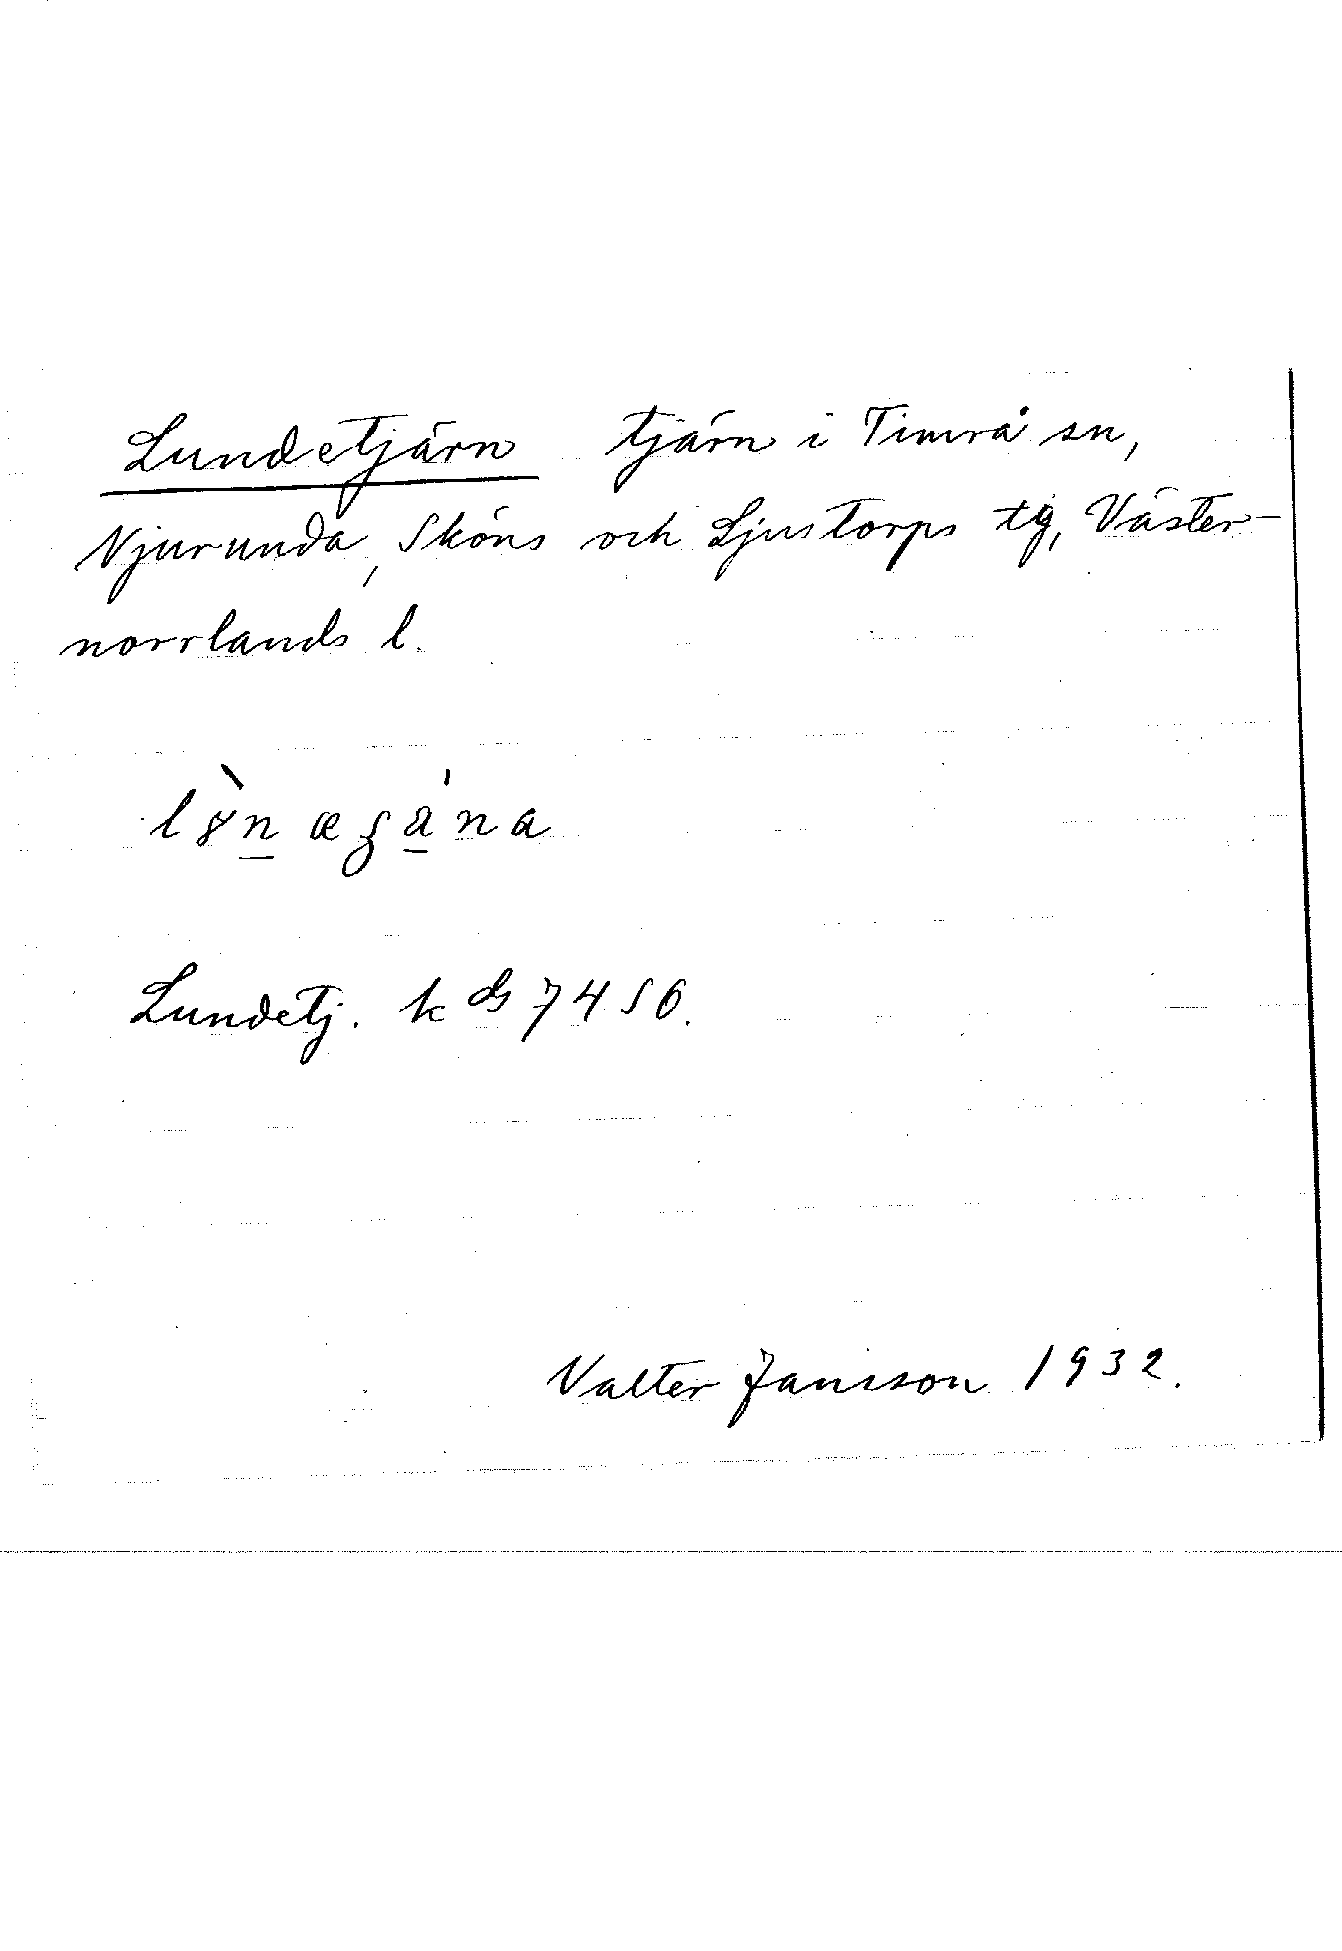 Lundetjärn tjärn i Timrå sn,
Njurunda, Sköns och Ljustorps tg, Väster-
norrlands l.
Lundetj. k ds 7456.
Valter Jansson 1932.